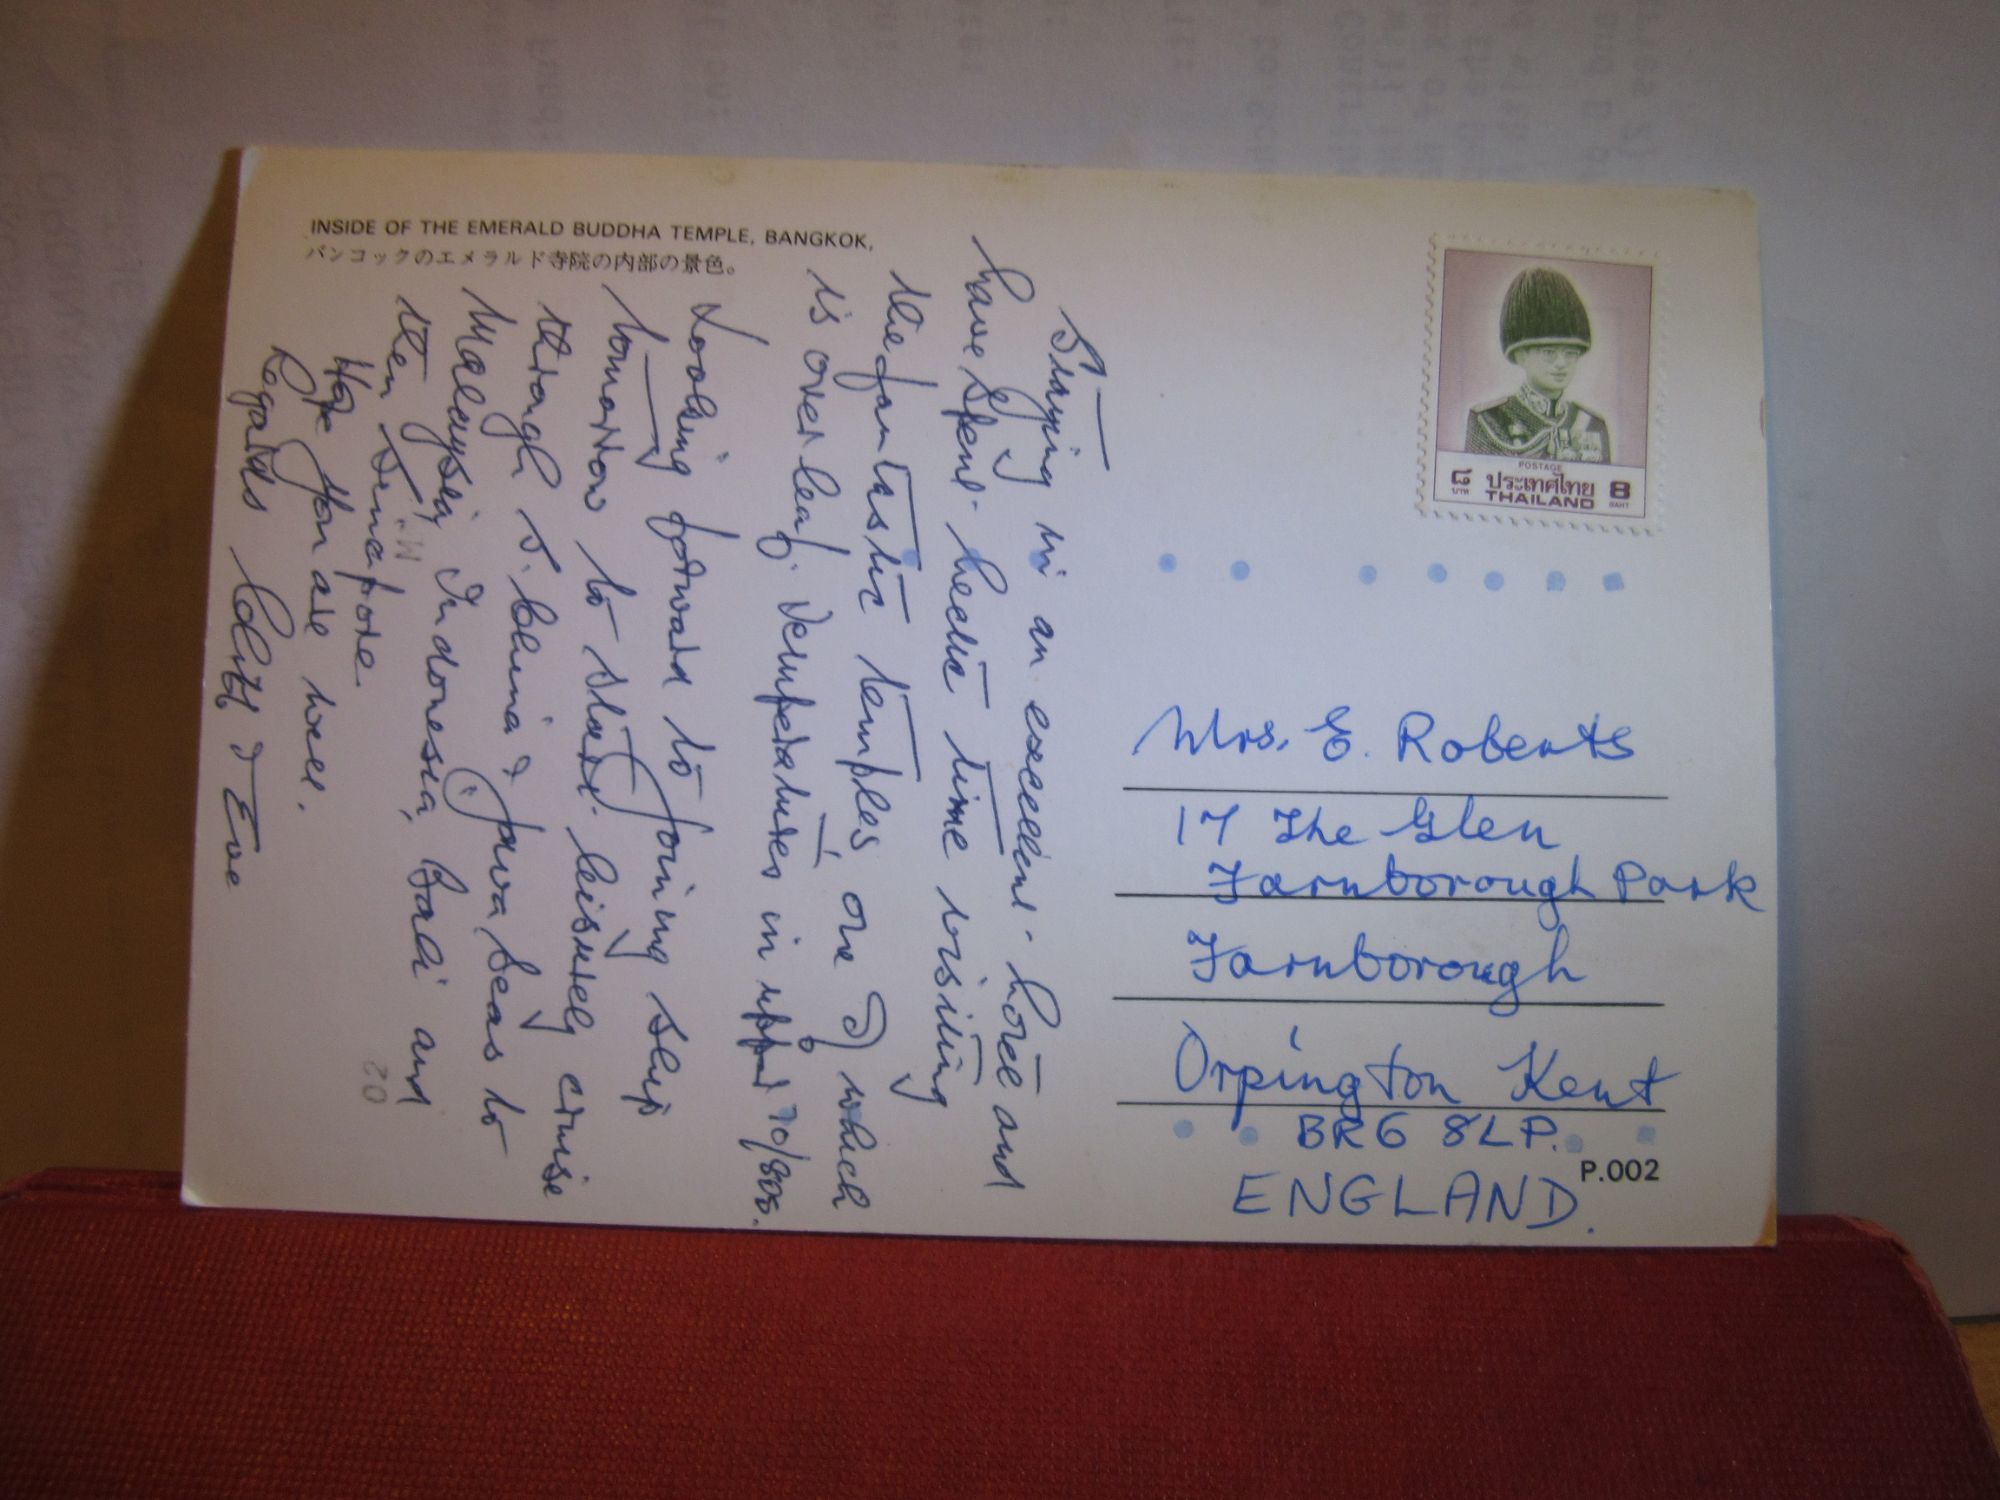 INSIDE OF THE EMERALD BUDDHA TEMPLE, BANGKOK,
バンコックのエメラルド寺院の内部の景色。
Staying in an excellent hotel and
have spent hectic time visiting
the fantastic temples, one of which
is overleaf. Temperatures in upper 70/80s.
Looking forward to joining ship
tomorrow to start leisurely cruise
through S. China & Java Seas to
Malaysia, Indonesia, Bali and
then Singapore.
Hope you are well.
Regards & Eve
20
POSTAGE
๘ ประเทศไทย 8
บาท THAILAND BAHT
Mrs. E. Roberts
17 The Glen
Farnborough Park
Farnborough
Orpington Kent
BR6 8LP.
P.002
ENGLAND.